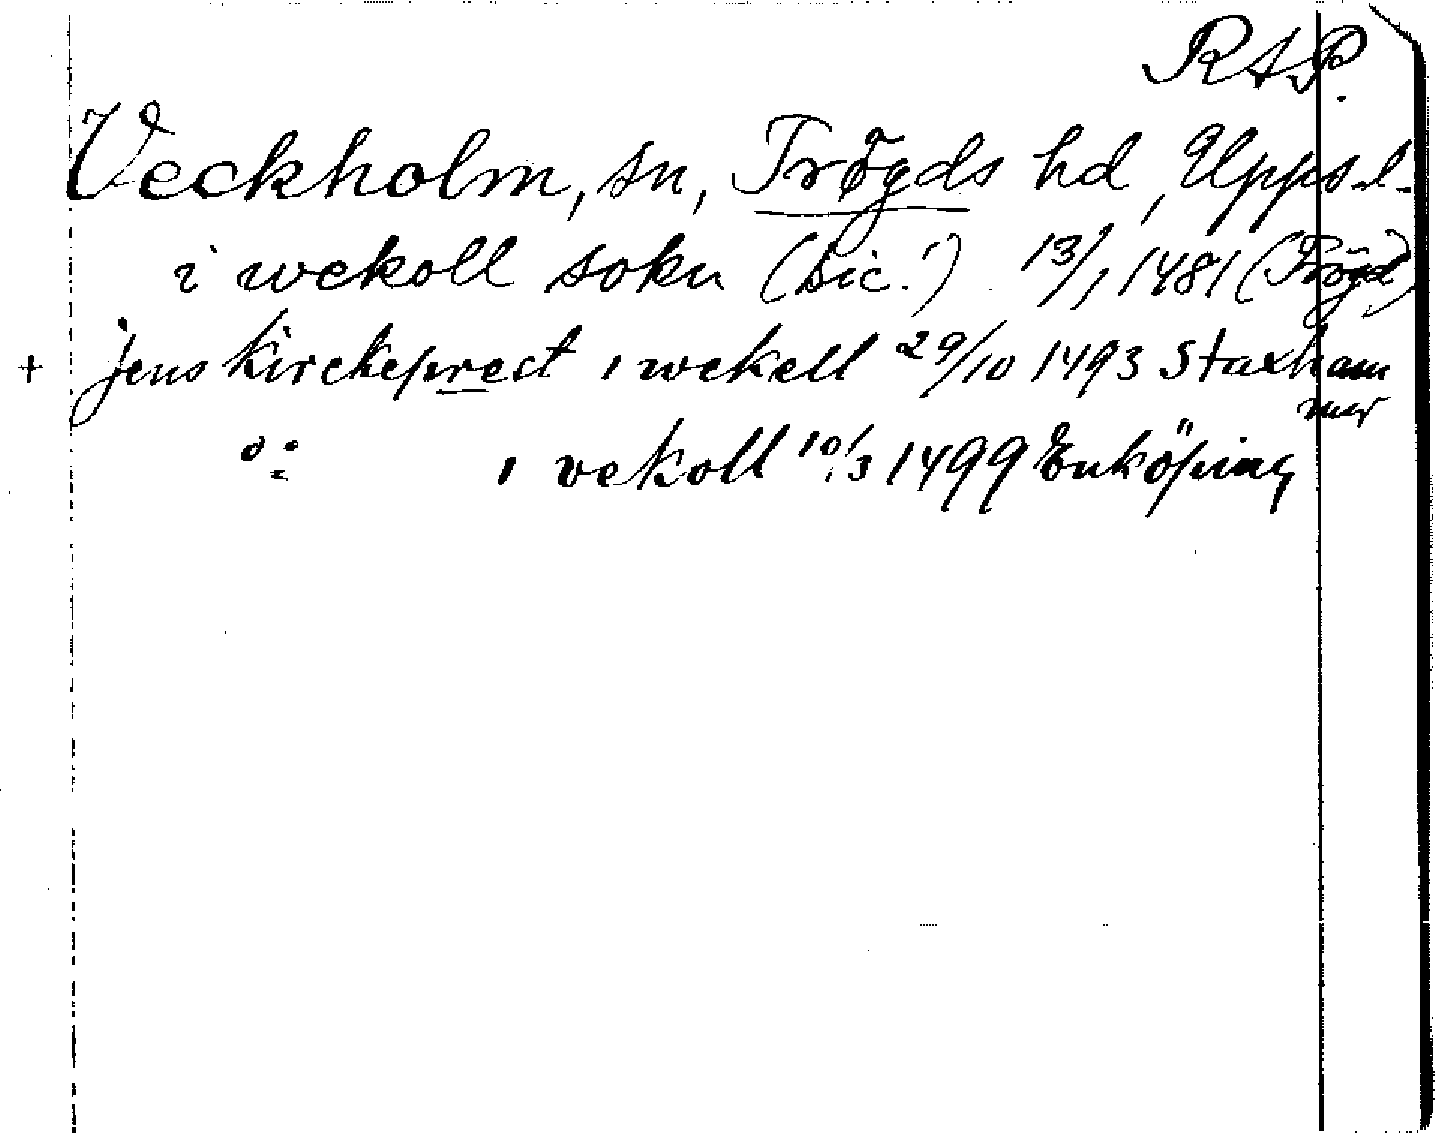 RAP.
Veckholm, sn, Trögds hd, Uppsal.
i wekoll sokn (sic!) 13/1 1481 (Trögd)
+ jens kirckeprest i wekell 29/10 1493 Staxhammer
i vekoll 10/3 1499 Enköping